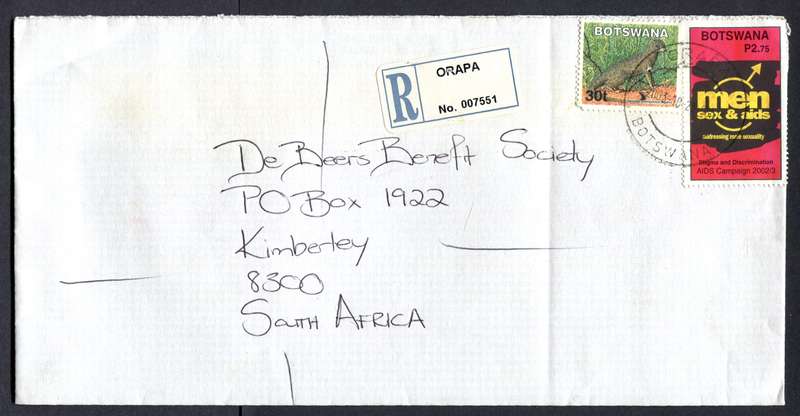 BOTSWANA
30t
BOTSWANA
P2.75
men
sex & aids
addressing male sexuality
Stigma and Discrimination
AIDS Campaign 2002/3
BOTSWANA
R
ORAPA
No. 007551
De Beers Benefit Society
PO Box 1922
Kimberley
8300
South Africa